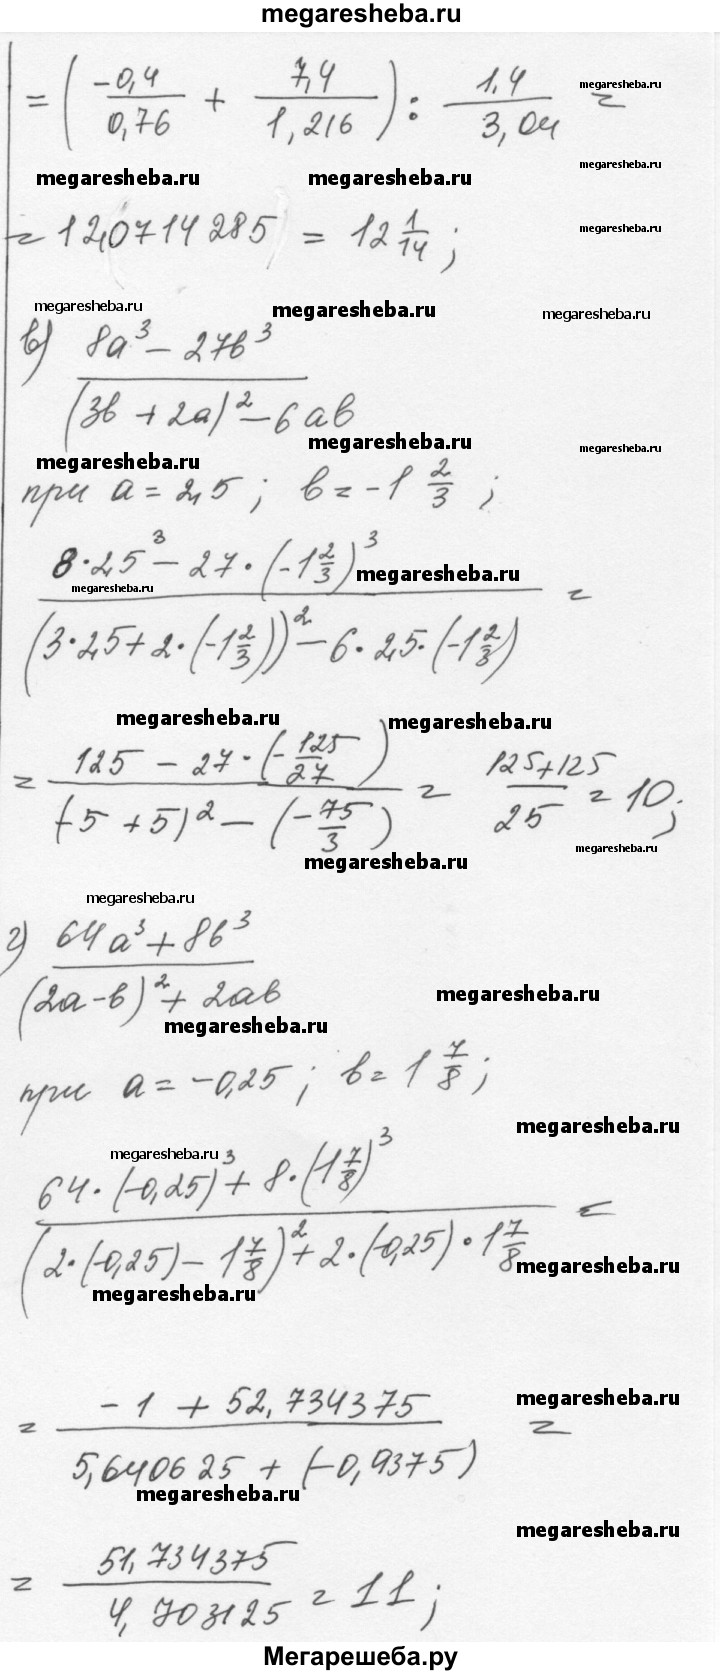 megaresheba.ru
= (-0,4/0,76 + 7,4/1,216) : 1,4/3,04 =
megaresheba.ru
megaresheba.ru
megaresheba.ru
megaresheba.ru
= 12,0714285) = 12 1/14 ;
megaresheba.ru
megaresheba.ru
megaresheba.ru
megaresheba.ru
в) 8a³ - 27b³ / (3b + 2a)² - 6ab
megaresheba.ru
megaresheba.ru
megaresheba.ru
при a = 2,5 ; b = -1 2/3 ;
8·2,5³ - 27·(-1 2/3)³ / (3·2,5 + 2·(-1 2/3))² - 6·2,5·(-1 2/3) =
megaresheba.ru
megaresheba.ru
megaresheba.ru
megaresheba.ru
= 125 - 27·(-125/27) / (-5 + 5)² - (-75/3) = 125+125/25 = 10;
megaresheba.ru
megaresheba.ru
megaresheba.ru
г) 64a³ + 8b³ / (2a-b)² + 2ab
megaresheba.ru
megaresheba.ru
при a = -0,25 ; b = 1 7/8 ;
megaresheba.ru
megaresheba.ru
64·(-0,25)³ + 8·(1 7/8)³ / (2·(-0,25) - 1 7/8)² + 2·(-0,25)·1 7/8 =
megaresheba.ru
megaresheba.ru
megaresheba.ru
= -1 + 52,734375 / 5,640625 + (-0,9375) =
megaresheba.ru
megaresheba.ru
= 51,734375 / 4,703125 = 11 ;
Мегарешеба.ру